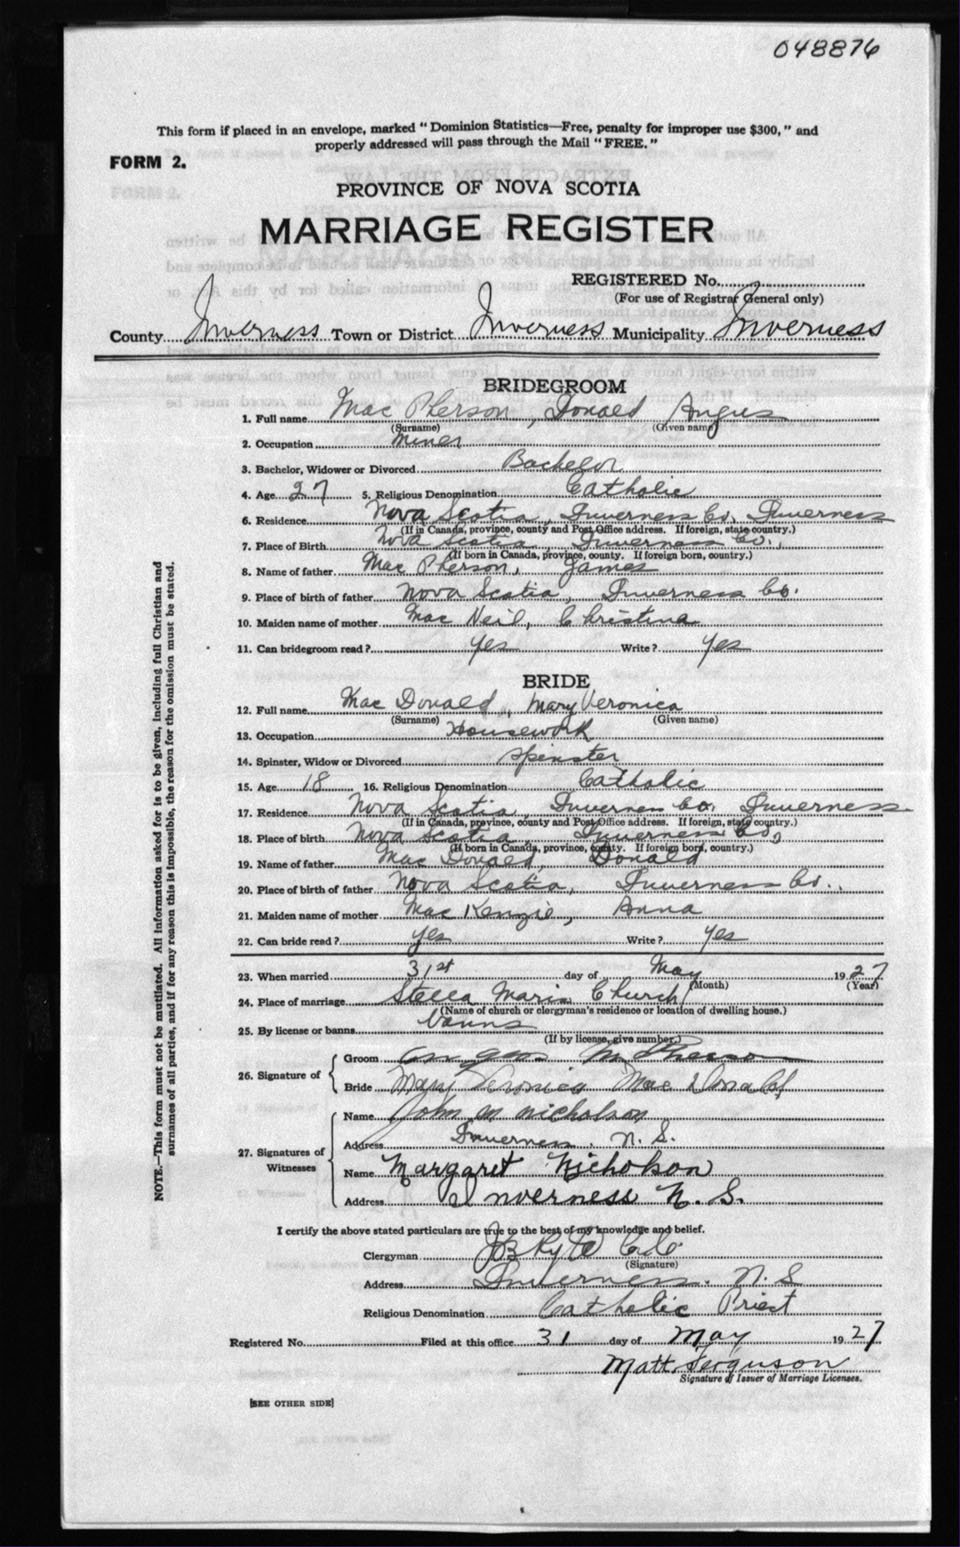 048876
This form if placed in an envelope, marked "Dominion Statistics—Free, penalty for improper use $300," and
properly addressed will pass through the Mail "FREE."
FORM 2.
PROVINCE OF NOVA SCOTIA
MARRIAGE REGISTER
REGISTERED No.
(For use of Registrar General only)
County Inverness Town or District Inverness Municipality Inverness
BRIDEGROOM
1. Full name Mac Pherson, Donald Angus
(Surname) (Given name)
2. Occupation Miner
3. Bachelor, Widower or Divorced Bachelor
4. Age 27 5. Religious Denomination Catholic
6. Residence Nova Scotia, Inverness Co, Inverness
(If in Canada, province, county and Post Office address. If foreign, state country.)
7. Place of Birth Nova Scotia Inverness Co.,
(If born in Canada, province, county. If foreign born, country.)
8. Name of father Mac Pherson, James
9. Place of birth of father Nova Scotia, Inverness Co.
10. Maiden name of mother Mac Neil, Christina
11. Can bridegroom read? yes Write? yes
BRIDE
12. Full name Mac Donald, Mary Veronica
(Surname) (Given name)
13. Occupation Housework
14. Spinster, Widow or Divorced Spinster
15. Age 18 16. Religious Denomination Catholic
17. Residence Nova Scotia, Inverness Co. Inverness
(If in Canada, province, county and Post Office address. If foreign, state country.)
18. Place of birth Nova Scotia Inverness Co,
(If born in Canada, province, county. If foreign born, country.)
19. Name of father Mac Donald, Donald
20. Place of birth of father Nova Scotia, Inverness Co.
21. Maiden name of mother Mac Kenzie, Anna
22. Can bride read? yes Write? yes
23. When married 31st day of May 1927
(Month) (Year)
24. Place of marriage Stella Maris Church
(Name of church or clergyman's residence or location of dwelling house.)
25. By license or banns banns
(If by license, give number.)
26. Signature of
Groom Angus
Bride Mary Veronica Mac Donald
27. Signatures of Witnesses
Name John M Nicholson
Address Inverness, N.S.
Name Margaret Nicholson
Address Inverness N.S.
I certify the above stated particulars are true to the best of my knowledge and belief.
Clergyman
(Signature)
Address Inverness. N.S
Religious Denomination Catholic Priest
Registered No. Filed at this office 31 day of May 1927
Matt. Ferguson
Signature of Issuer of Marriage Licenses.
[SEE OTHER SIDE]
NOTE.—This form must not be mutilated. All information asked for is to be given, including full Christian and
surnames of all parties, and if for any reason this is impossible, the reason for the omission must be stated.